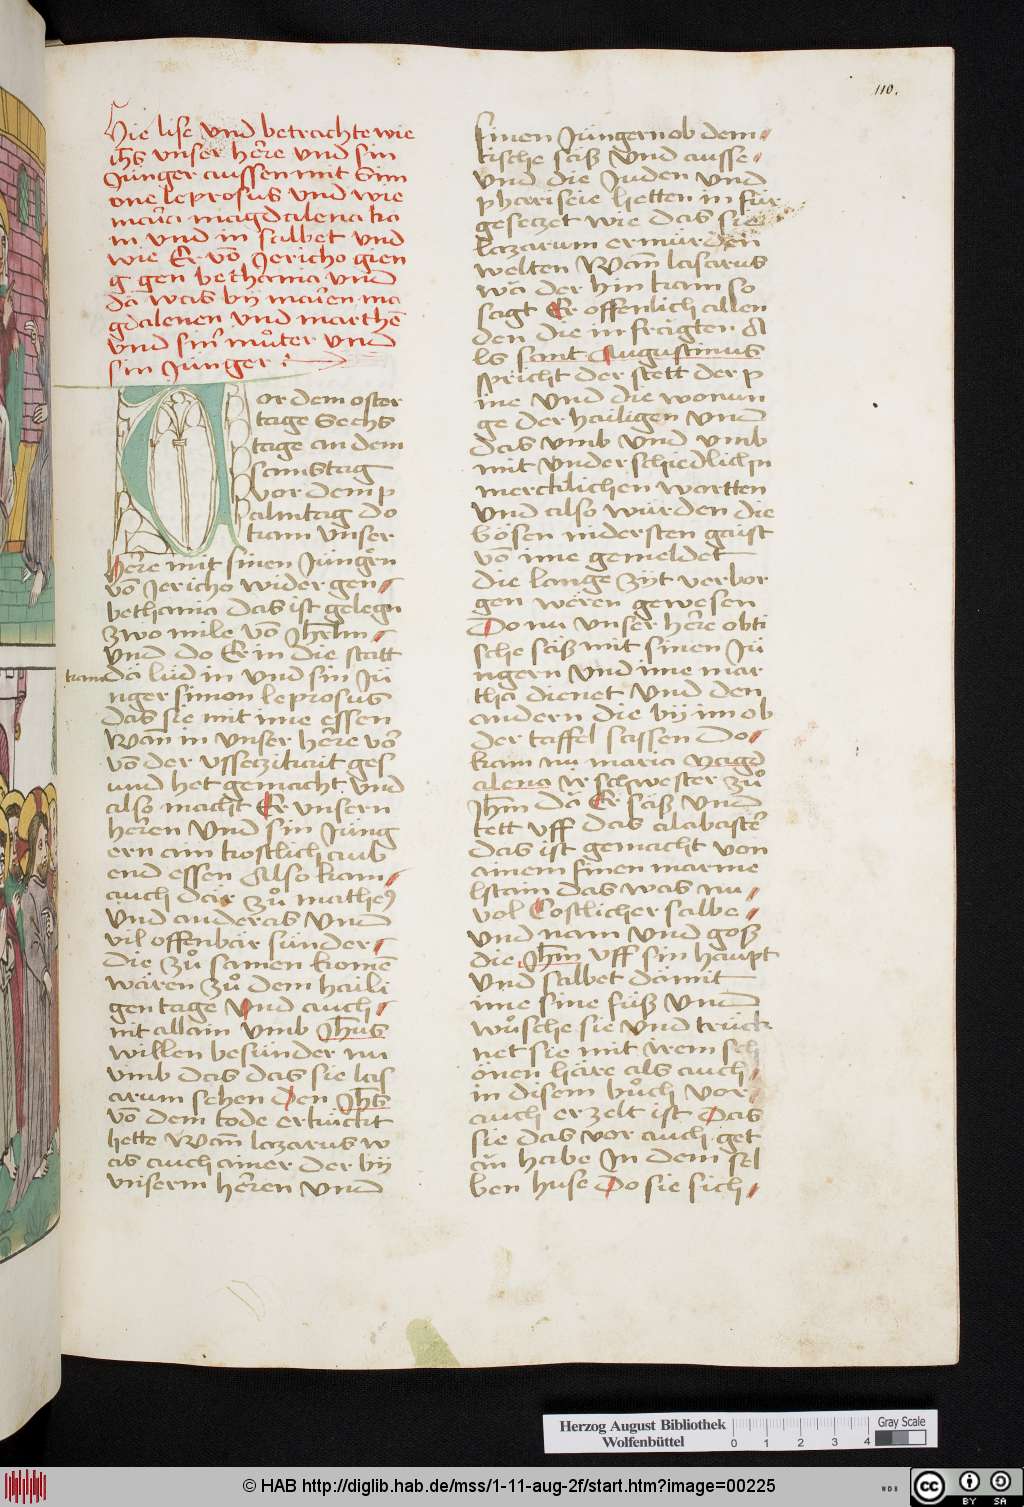 110.
Hie lise vnd betrachte wie
ih̄s vnser her̄e vnd sin
Jünger aussen mit Sim
one leprosus vnd wie
maria magdalena ka
m vnd in salbet vnd
wie Er vō Jericho gien
g gen bethania vnd
da was bÿ marien ma
gdalenen vnd marthē
vnd sinr můter vnd
sin Jünger
Vor dem oster
tage Sechs
tage an dem
samstag
vor dem p
almtag do
kam vnser
her̄e mit sinen Jüngern
vō Jericho wider gen
bethania das ist gelegn
zwo mile vō Jhr̄lm
vnd do Er in die statt
kam da lud in vnd sin Jü
nger simon leprosus
das sie mit ime essen
Wan̄ in vnser her̄e vor
vō der vssetzikait ges
und het gemacht vnd
also macht Er vnsern
heren vnd sin Jüng
ern ain kostlich aub
end essen Also kam
auch dar zů matheꝰ
vnd anderas vnd
vil offenbar sünder
die zů samen komē
wären zů dem haili
gen tage vnd auch
nit allain vmb Jhu̅s
willen besünder nu
vmb das das sie las
arum sehen den Jh̅s
vō dem tode erkückt
hette Wan̄ lazarus w
as auch ainer der bÿ
vnserm heren vnd
sinen Jüngern ob dem
tische sasz vnd ausse
vnd die Juden vnd
phariseie hetten in für
gesetzet wie das sie
lazarum ermürden
welten Wan̄ lasarus
wa der hin kam so
sagt Er offenlich allen
den die in fragten A
ls sant Augustinus
spricht der stett der p
ine vnd die wonun
ge der hailigen vnd
das vmb vnd vmb
mit vnderschiedlichn
mercklichen wortten
vnd also würden die
bösen nidersten gaist
vō ime gemeldet
die lange zÿt verbor
gen wären gewesen
Do nu vnser her̄e obti
sche sasz mit sinen Jü
ngern vnd ime mar
tha dienet vnd den
andern die bÿ im ob
der taffel sassen Do
kam nu maria Magd
alena ir schwester zů
Jhm̄ da Er sasz vnd
tett vff das alabaster
das ist gemacht von
ainem finen marme
lstain das was nu
vol Costlicher salbe
vnd nam vnd gosz
die Jhm̄ vff sin haupt
vnd salbet damit
ime sine füsz vnd
wůsche sie vnd trück
net sie mit irem sch
önen häre als auch
in disem bůch vor
auch erzelt ist Das
sie das vor auch get
an habe In dem sel
ben huse Do sie sich
Herzog August Bibliothek
Wolfenbüttel
0 1 2 3 4
Gray Scale
© HAB http://diglib.hab.de/mss/1-11-aug-2f/start.htm?image=00225
WDB
cc BY SA